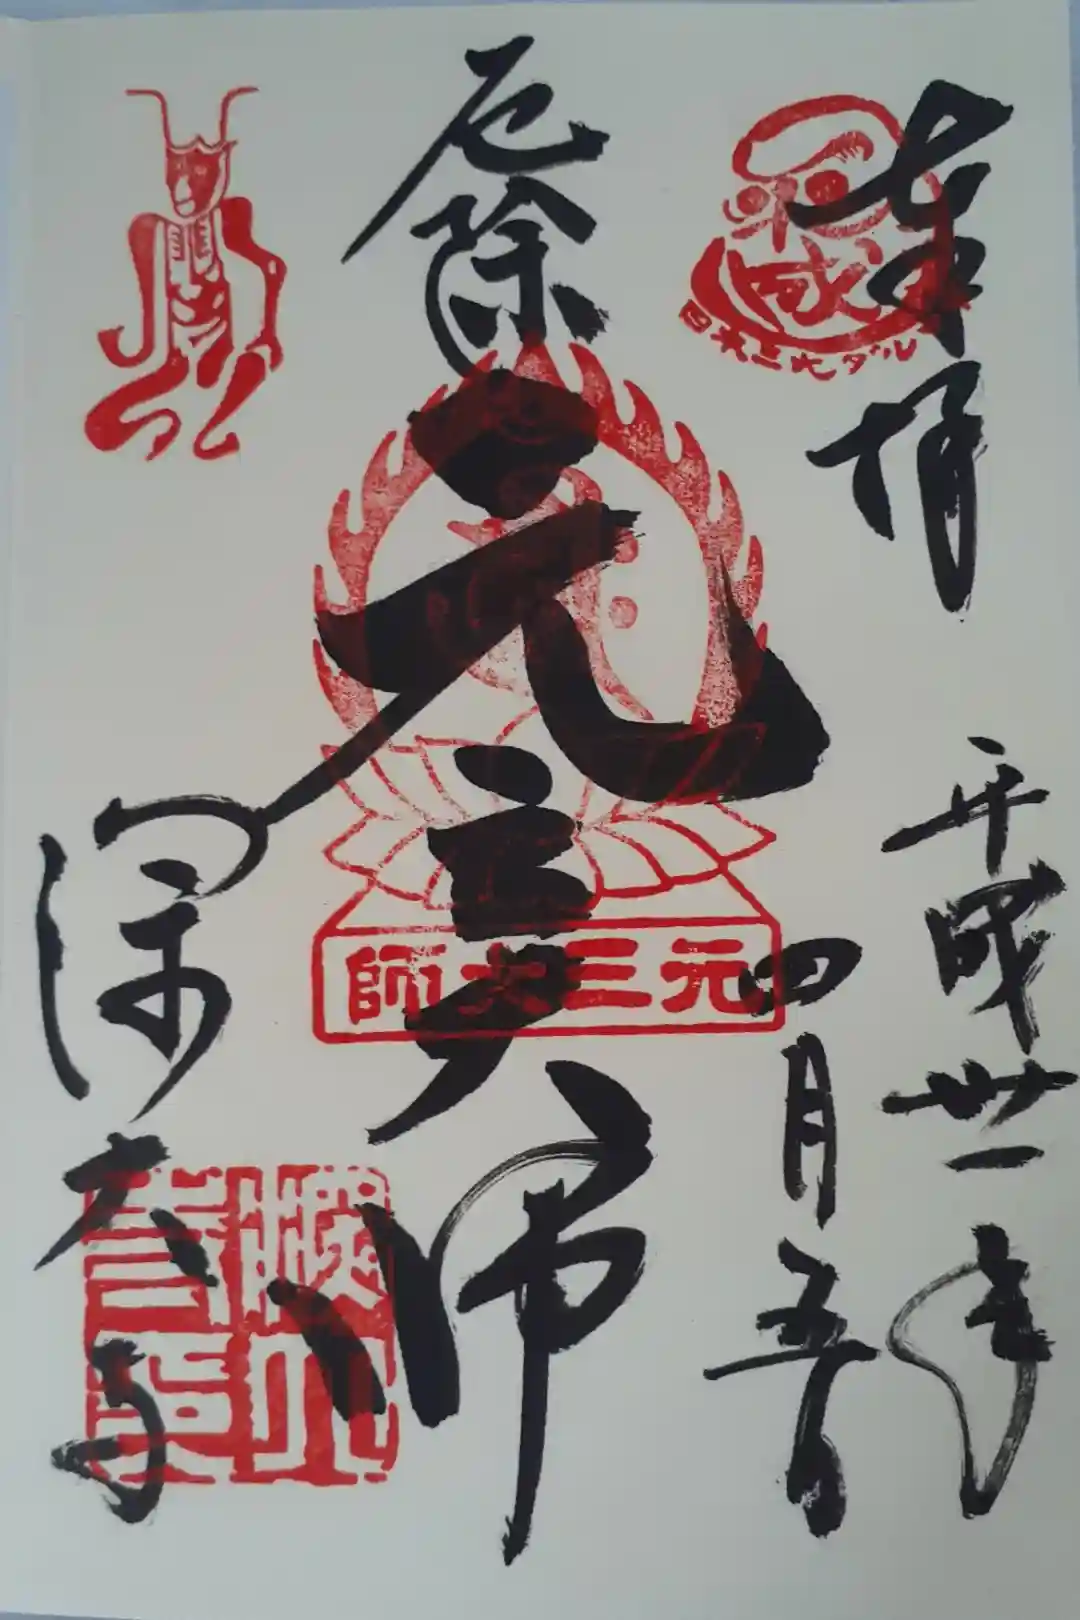 奉拝
平成卅一年
四月五日
厄除
元三大師
深大寺
日本三大ダルマ
元三大師